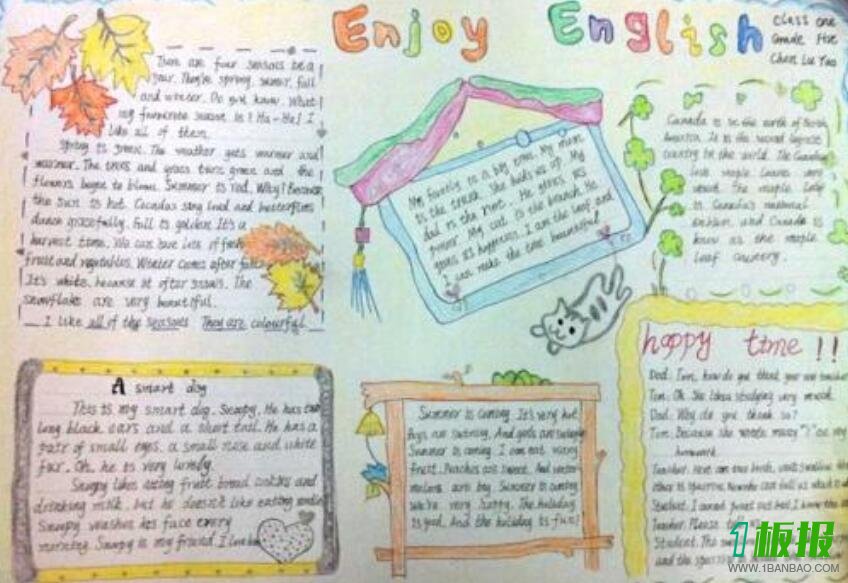 Enjoy English
Class one
Grade Five
There are four seasons in a
year. They're spring, summer, fall
and winter. Do you know, What
my favourite season is? Ha-Ha! I
like all of them
Spring is green. The weather gets warmer and
warmer. The trees and grass turn green and the
flowers begin to bloom. Summer is red. Why? Because
the sun is hot. Cicadas sing loud and butterflies
dance gracefully. Fall is golden. It's a
harvest time. We can have lots of fresh
fruit and vegetables. Winter comes after fall.
It's white, because it often snows. The
snowflake are very beautiful.
I like all of the seasons They are colourful.
My family is a big tree. My mum
is the trunk. She holds us up. My
dad is the root. He gives us
power. My cat is the branch. He
gives us happiness. I am the leaf and
I can make the tree beautiful
Canada is in the north of North
America. It is the second largest
country in the world. The Canadian
love maple leaves very
much. The maple leaf
is Canada's national
emblem and Canada is
know as the maple
leaf country.
A smart dog
This is my smart dog, Snoopy. He has two
long black ears and a short tail. He has a
pair of small eyes, a small nose and white
fur. Oh, he is very lovely.
Snoopy likes eating fruit bread cookies and
drinking milk, but he doesn't like eating
Snoopy washes his face every
morning. Snoopy is my friend. I love him
Summer is coming. It's very hot
Boys are swimming. And girls are
Summer is coming. I can eat many
fruit. Peaches are sweet. And water-
melons are big. Summer is coming
we're very happy. The holiday
is good. And the holiday is fun!
happy time!!
Dad: Tom, how do you think your new teacher
Tom: Oh. She likes studying very much.
Dad: Why do you think so?
Tom: Because she wrote many "?" on my
homework.
Teacher: Here are two birds, one's swallow the
other is sparrow. Now who can tell us which is
Student: I cannot point out but I know the
Teacher: Please
Student: The
and the sparrow
1板报
WWW.1BANBAO.COM